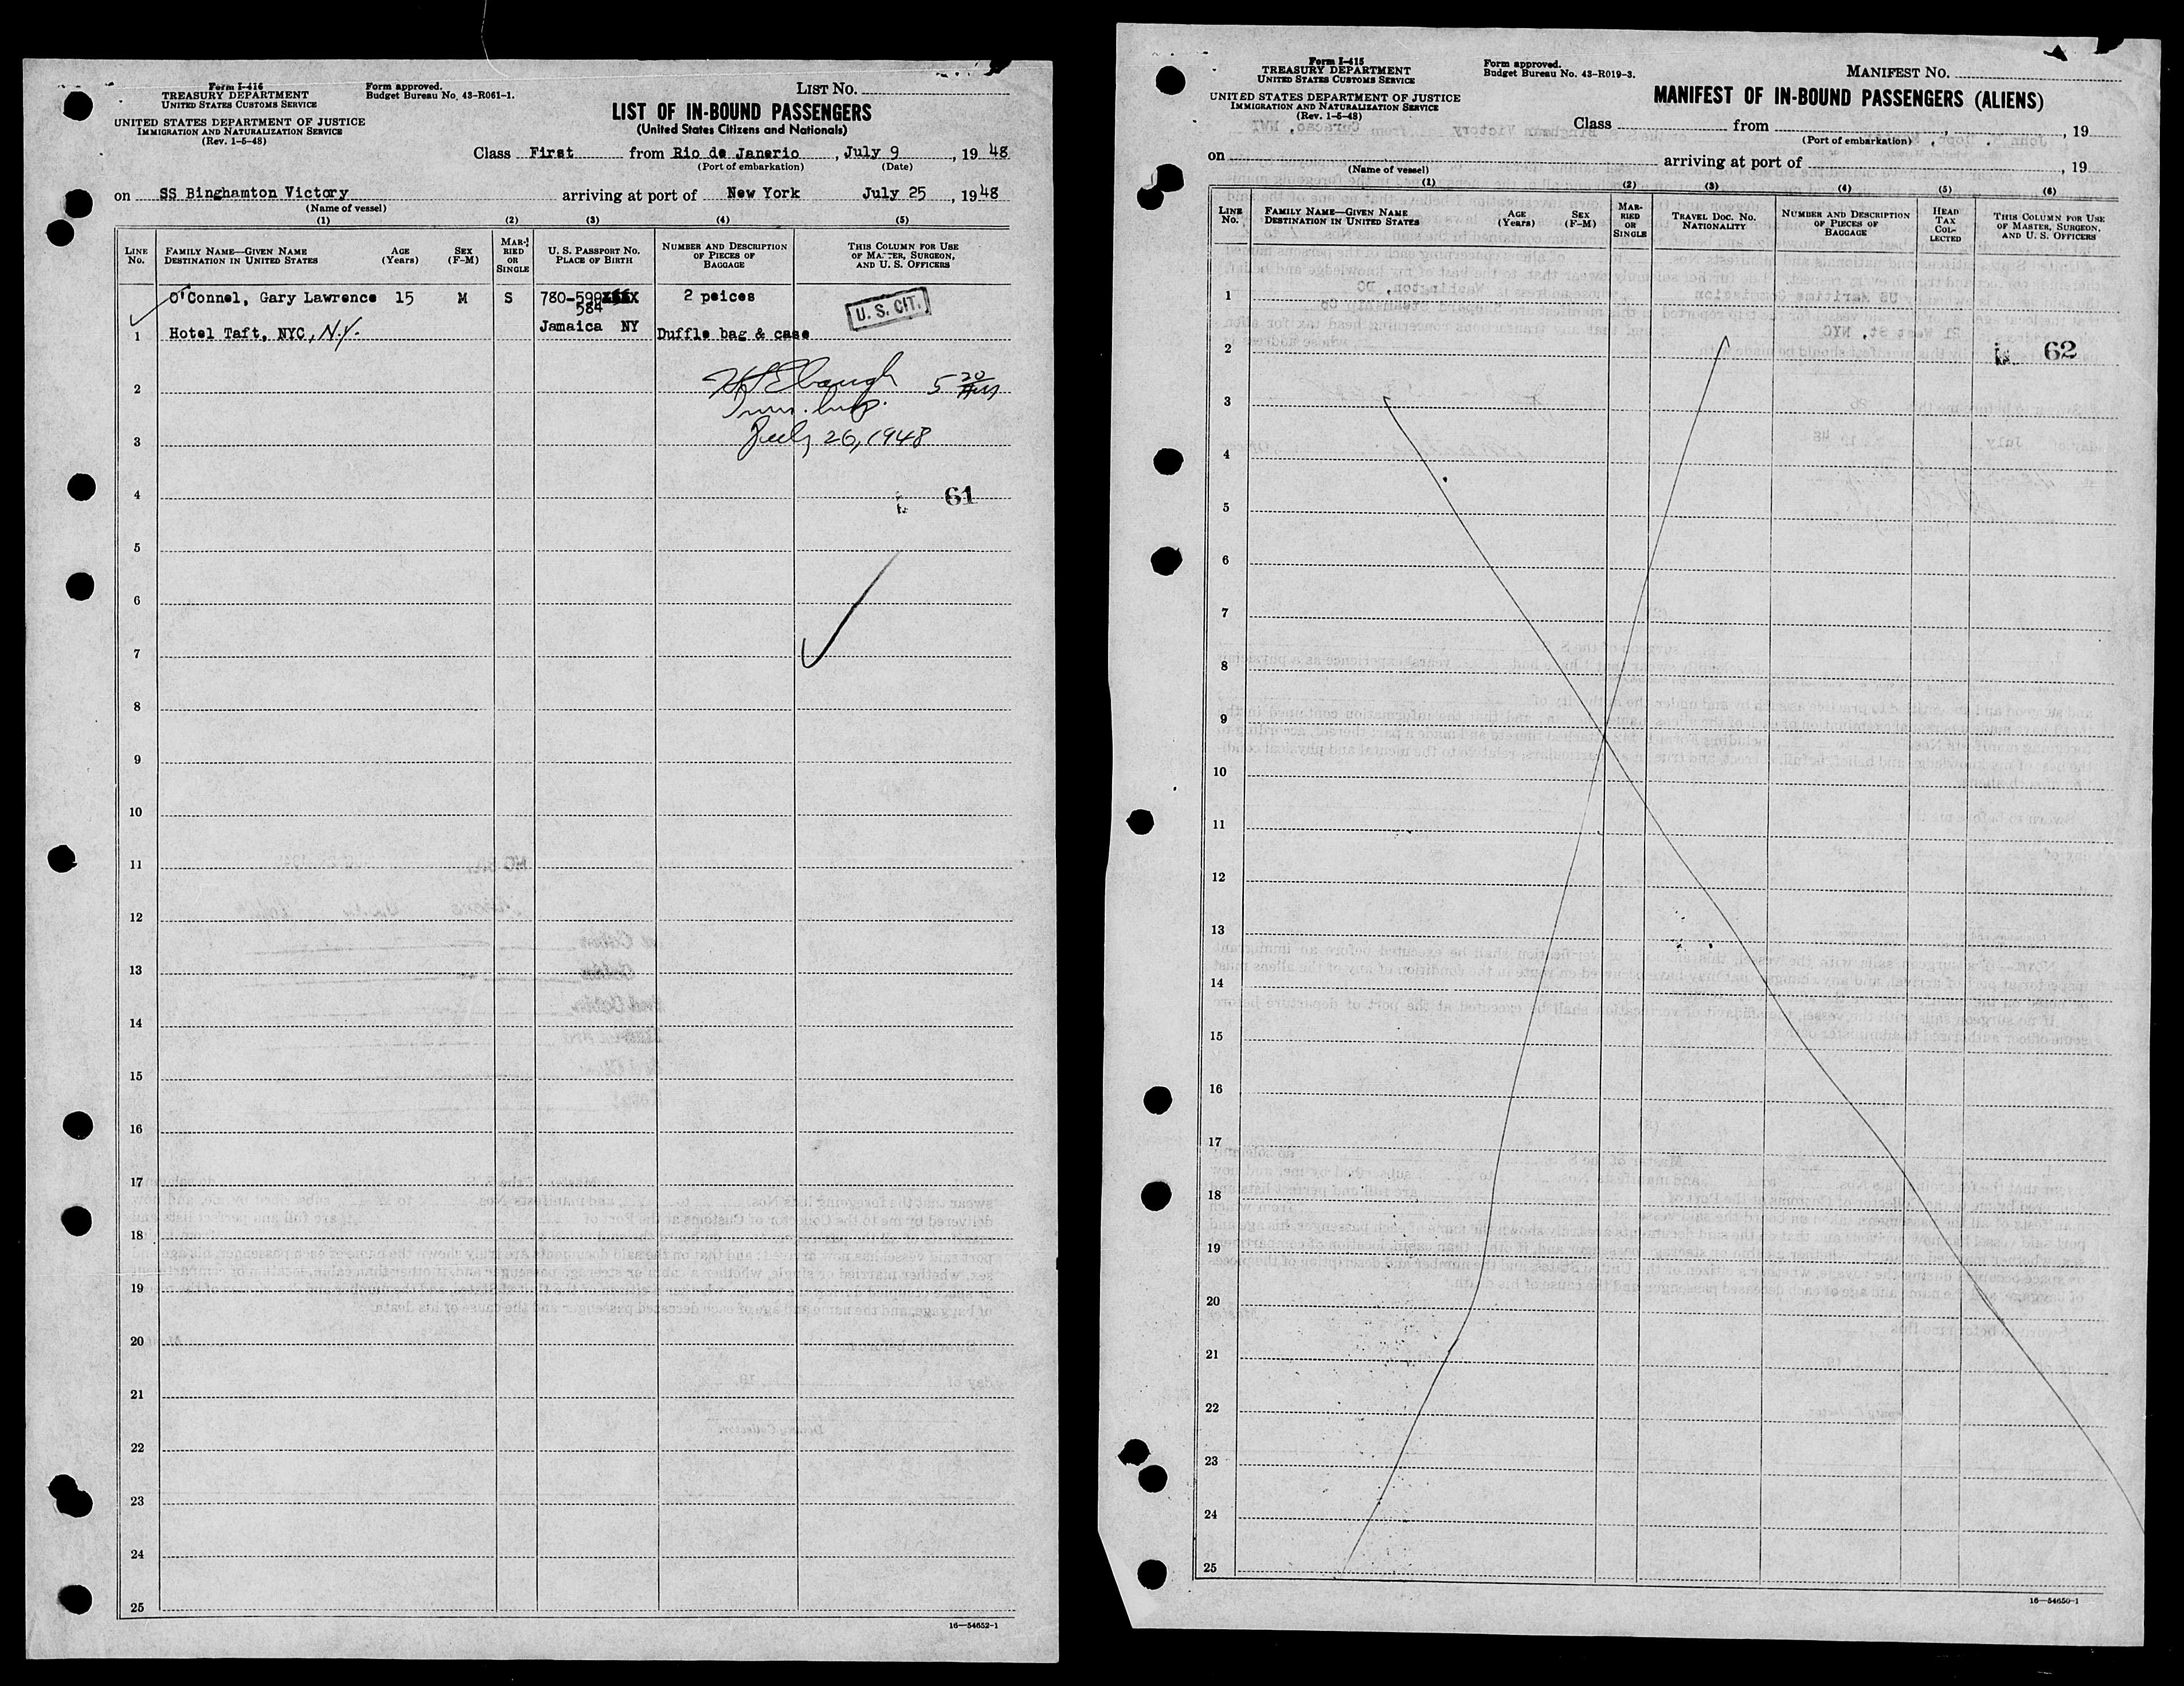 Form I-416
TREASURY DEPARTMENT
UNITED STATES CUSTOMS SERVICE
UNITED STATES DEPARTMENT OF JUSTICE
IMMIGRATION AND NATURALIZATION SERVICE
(Rev. 1-5-48)
Form approved.
Budget Bureau No. 43-R061-1.
LIST NO.
LIST OF IN-BOUND PASSENGERS
(United States Citizens and Nationals)
Class First from Rio de Janerio, July 9, 1948
(Port of embarkation) (Date)
on SS Binghamton Victory arriving at port of New York July 25, 1948
(Name of vessel)
(1) (2) (3) (4) (5)
LINE NO.
FAMILY NAME—GIVEN NAME
DESTINATION IN UNITED STATES
AGE (Years)
SEX (F-M)
MARRIED OR SINGLE
U. S. PASSPORT NO.
PLACE OF BIRTH
NUMBER AND DESCRIPTION OF PIECES OF BAGGAGE
THIS COLUMN FOR USE OF MASTER, SURGEON, AND U. S. OFFICERS
O'Connel, Gary Lawrence 15 M S 780-599 2 peices
584
U. S. CIT.
1 Hotel Taft, NYC, N.Y. Jamaica NY Duffle bag & case
2
Imm. Insp.
3 July 26, 1948
4 61
5
6
7
8
9
10
11
12
13
14
15
16
17
18
19
20
21
22
23
24
25
16—54652-1
Form I-415
TREASURY DEPARTMENT
UNITED STATES CUSTOMS SERVICE
UNITED STATES DEPARTMENT OF JUSTICE
IMMIGRATION AND NATURALIZATION SERVICE
(Rev. 1-5-48)
Form approved.
Budget Bureau No. 43-R019-3.
MANIFEST NO.
MANIFEST OF IN-BOUND PASSENGERS (ALIENS)
Class from , 19
(Port of embarkation)
on arriving at port of , 19
(Name of vessel)
(1) (2) (3) (4) (5) (6)
LINE NO.
FAMILY NAME—GIVEN NAME
DESTINATION IN UNITED STATES
AGE (Years)
SEX (F-M)
MARRIED OR SINGLE
TRAVEL DOC. NO.
NATIONALITY
NUMBER AND DESCRIPTION OF PIECES OF BAGGAGE
HEAD TAX COLLECTED
THIS COLUMN FOR USE OF MASTER, SURGEON, AND U. S. OFFICERS
1
2 62
3
4
5
6
7
8
9
10
11
12
13
14
15
16
17
18
19
20
21
22
23
24
25
16—54650-1